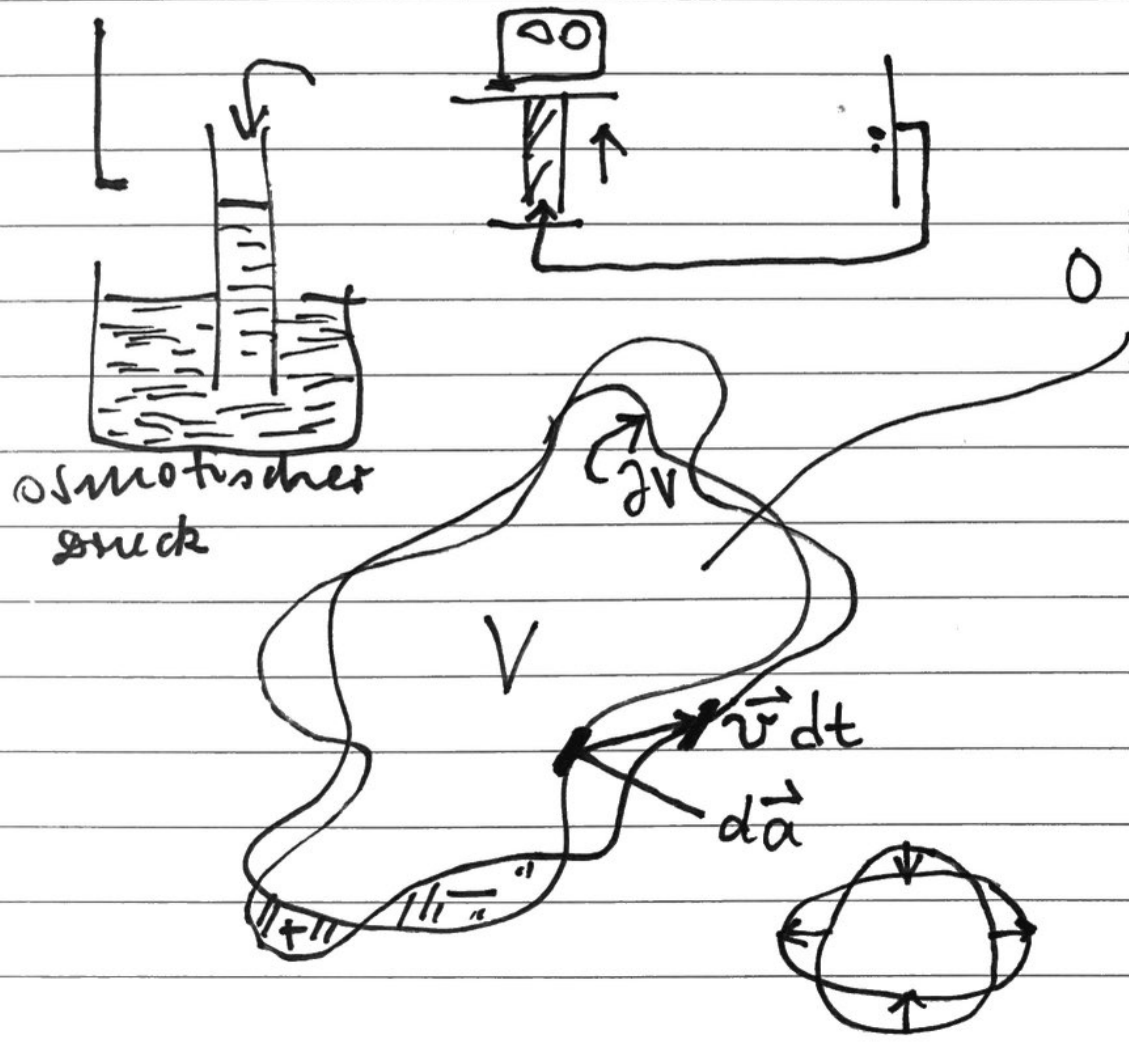 osmotischer
Druck
0
∂V
V
v⃗ dt
da⃗
+
−